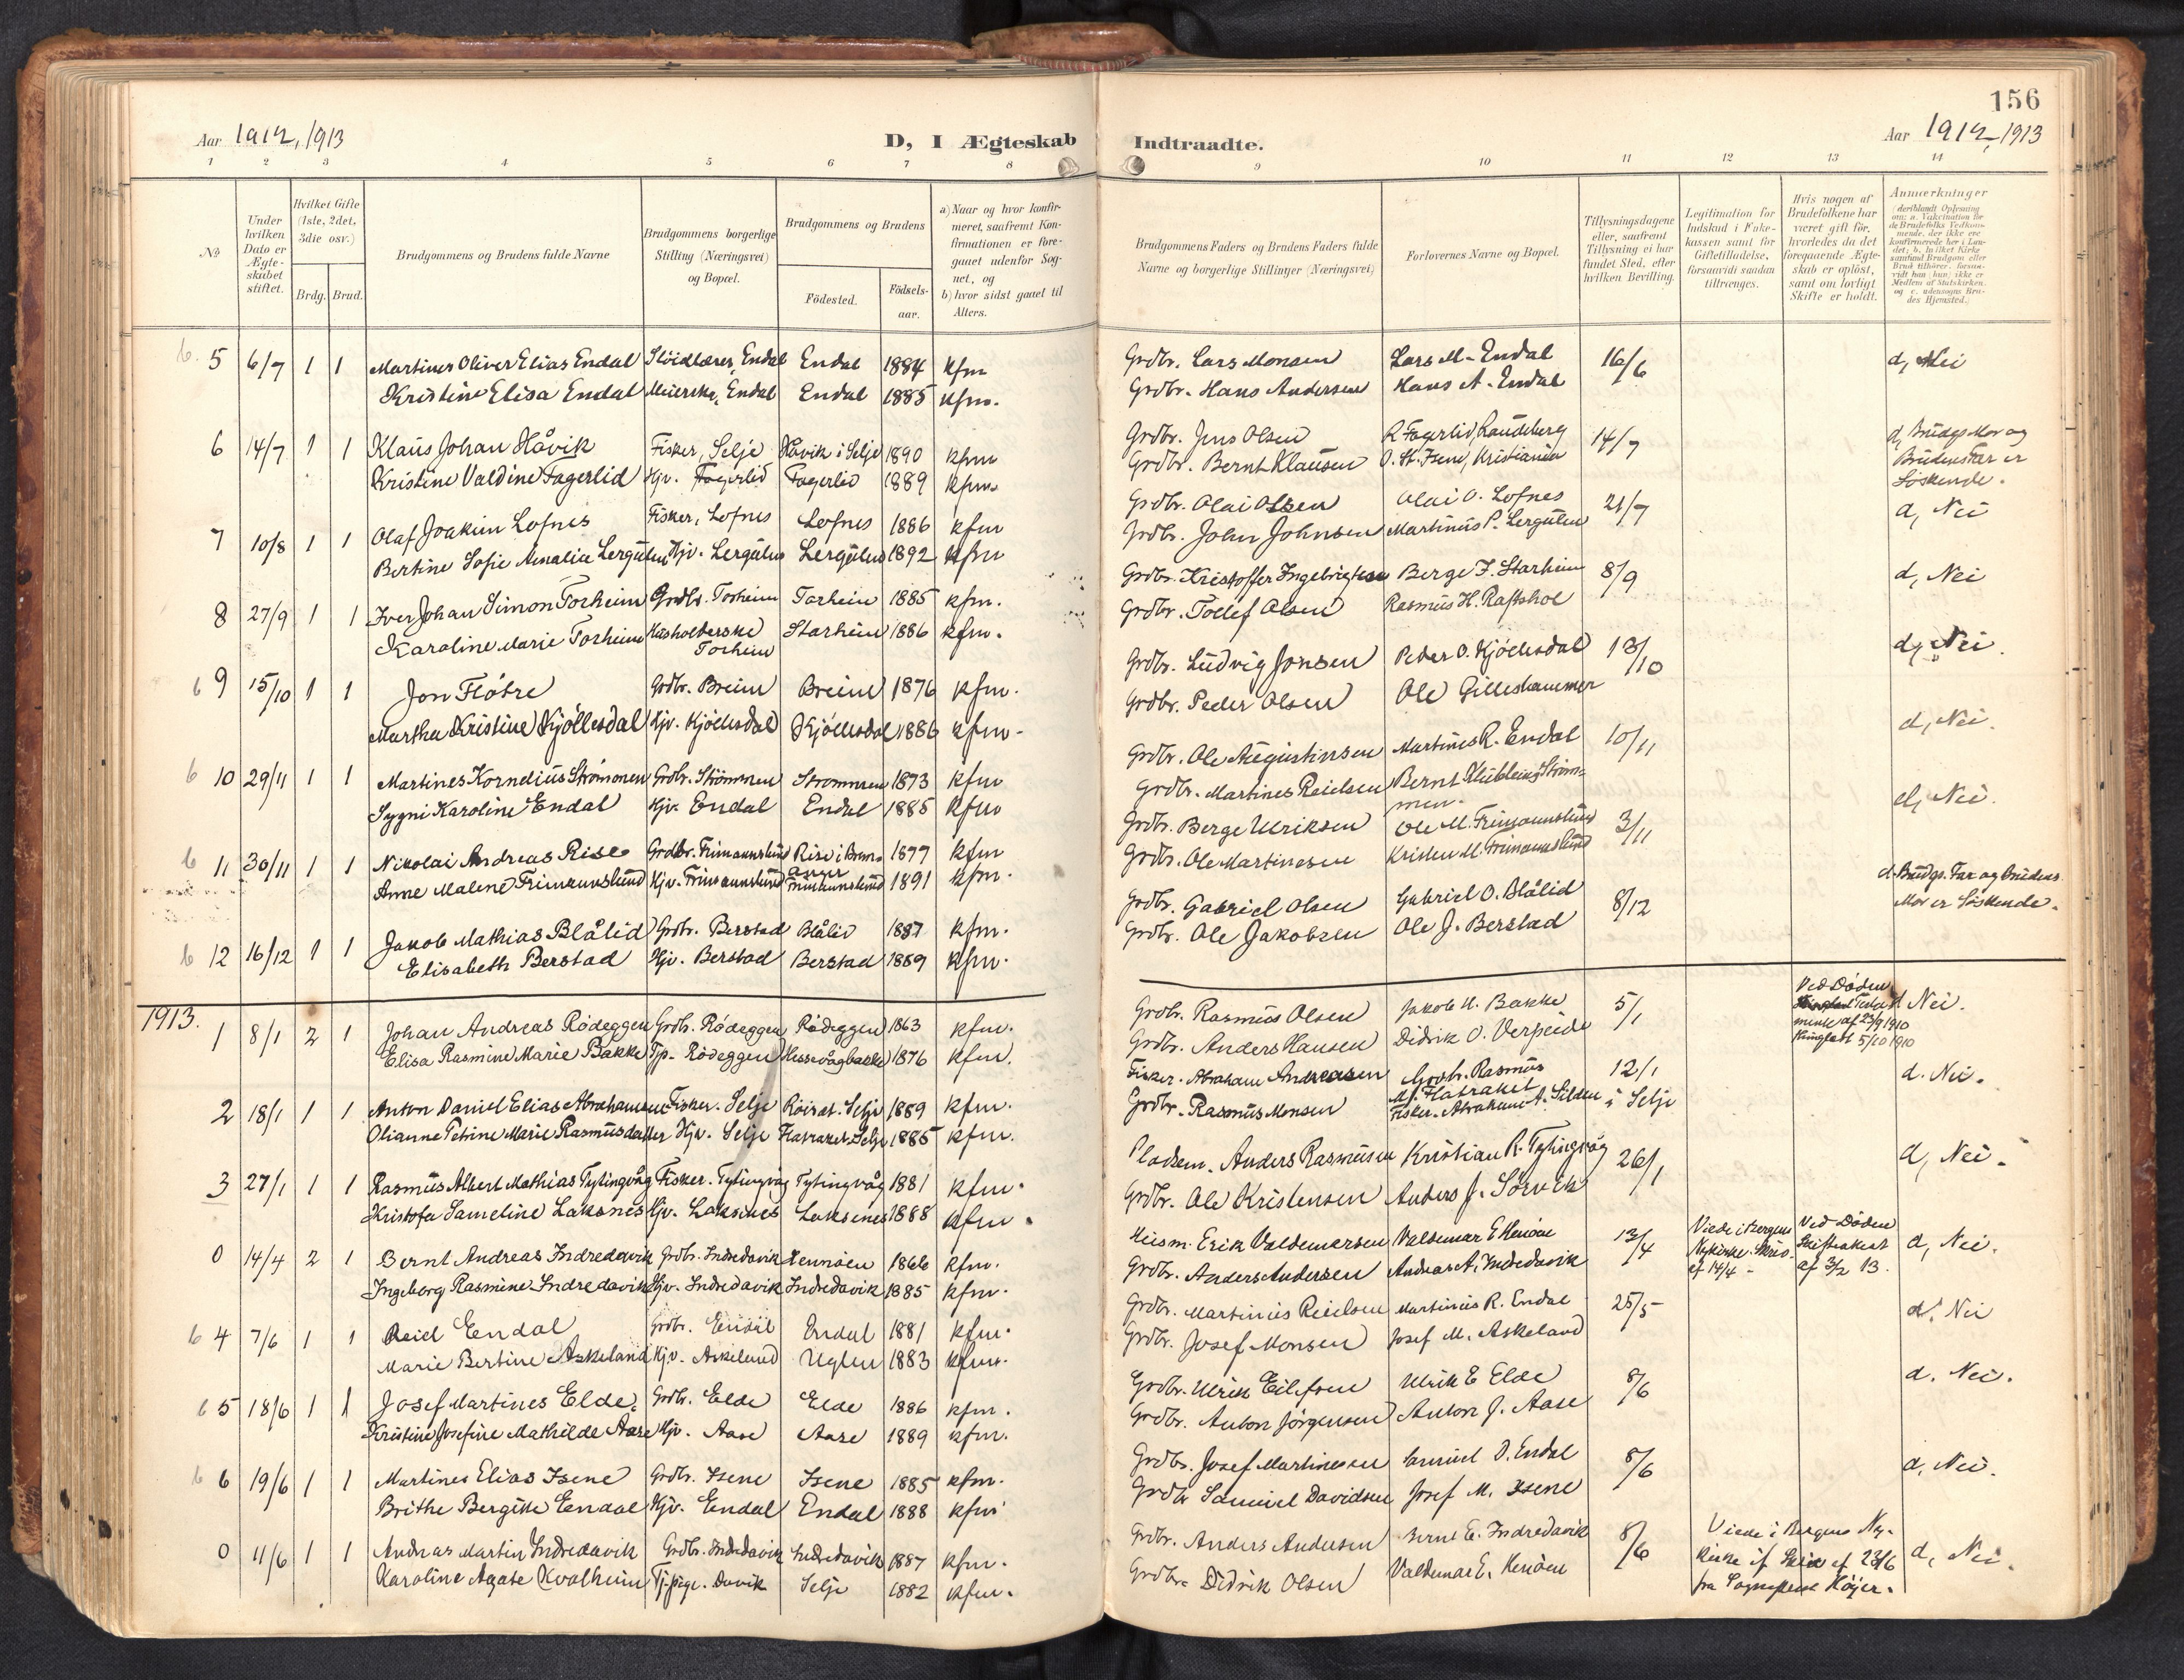 156
Aar 1912, 1913
D, I Ægteskab Indtraadte.
Aar 1912, 1913
1 2 3 4 5 6 7 8 9 10 11 12 13 14
No
Under hvilken Dato er Ægteskabet stiftet.
Hvilket Gifte (1ste, 2det, 3die osv.)
Brdg. Brud.
Brudgommens og Brudens fulde Navne
Brudgommens borgerlige Stilling (Næringsvei) og Bopæl.
Brudgommens og Brudens
Födested.
Födselsaar.
a) Naar og hvor konfirmeret, saafremt Konfirmationen er foregaaet udenfor Sognet, og
b) hvor sidst gaaet til Alters.
Brudgommens Faders og Brudens Faders fulde Navne og borgerlige Stillinger (Næringsvei)
Forlovernes Navne og Bopæl.
Tillysningsdagene eller, saafremt Tillysning ei har fundet Sted, efter hvilken Bevilling.
Legitimation for Indskud i Enkekassen samt for Giftetilladelse, forsaavidt saadan tiltrænges.
Hvis nogen af Brudefolkene har været gift för, hvorledes da det foregaaende Ægteskab er oplöst, samt om lovligt Skifte er holdt.
Anmærkninger
6. 5 6/7 1 1 Martines Oliver Elias Endal Slöidlærer, Endal Endal 1884 kfm Grdbr. Lars Monsen Lars M. Endal 16/6 d, Nei
Kristine Elisa Endal Meierske, Endal Endal 1885 kfm. Grdbr. Hans Andersen Hans A. Endal
6 14/7 1 1 Klaus Johan Håvik Fisker, Selje Håvik i Selje 1890 kfm Grdbr. Jens Olsen R Fagerlid, Raudeberg 14/7 d, Brudgs Mor og
Kristine Valdine Fagerlid Hjv. Fagerlid Fagerlid 1889 kfm. Grdbr. Bernt Klausen O. St. Isene, Kristiania Brudens Far er
Söskende.
7 10/8 1 1 Olaf Joakim Lofnes Fisker, Lofnes Lofnes 1886 kfm Grdbr. Olai Olsen Olai O. Lofnes 21/7 d, Nei
Bertine Sofie Amalia Lergulen Hjv. Lergulen Lergulen 1892 kfm Grdbr. John Johnsen Martinus P. Lergulen
8 27/9 1 1 Iver Johan Simon Torheim Grdbr. Torheim Torheim 1885 kfm. Grdbr. Kristoffer Ingebrigtsen Berge J. Starheim 8/9 d, Nei
Karoline Marie Torheim Husholderske Torheim Starheim 1886 kfm. Grdbr. Tollef Olsen Rasmus H. Raftshol
6 9 15/10 1 1 Jon Flötre Grdbr. Breim Breim 1876 kfm. Grdbr. Ludvig Jonsen Peder O. Kjöllesdal 13/10 d, Nei.
Martha Kristine Kjöllesdal Hjv. Kjöllesdal Kjöllesdal 1886 kfm. Grdbr. Peder Olsen Ole Gilleshammer
6 10 29/11 1 1 Martines Kornelius Strömmen Grdbr. Strömmen Strömmen 1873 kfm Grdbr. Ole Augustinsen Martines R. Endal 10/11 d, Nei.
Sygni Karoline Endal Hjv. Endal Endal 1885 kfm Grdbr. Martines Reielsen Bernt Strömmen.
6 11 30/11 1 1 Nikolai Andreas Rise Grdbr. Frimannslund Rise i Bremanger 1877 kfm Grdbr. Berge Ulriksen Ole M. Frimannslund 3/11 d, Nei.
Anne Malene Frimannslund Hjv. Frimannslund Frimannslund 1891 kfm. Grdbr. Ole Martinesen Kristen M. Frimannslund
6 12 16/12 1 1 Jakob Mathias Blålid Grdbr. Berstad Blålid 1887 kfm. Grdbr. Gabriel Olsen Gabriel O. Blålid 8/12 d. Brudgs. Far og brudens
Elisabeth Berstad Hjv. Berstad Berstad 1889 kfm. Grdbr. Ole Jakobsen Ole J. Berstad Mor er Söskende.
1913.
1 8/1 2 1 Johan Andreas Rödeggen Grdbr. Rödeggen Rödeggen 1863 kfm. Grdbr. Rasmus Olsen Jakob H. Bakke 5/1 Ved Döden mente af 23/9 1910 5/10 1910 d Nei.
Elisa Rasmine Marie Bakke Tp. Rödeggen Hessevågbakke 1876 kfm. Grdbr. Anders Hansen Didrik O. Verpeide
2 18/1 1 1 Anton Daniel Elias Abrahamsen Fisker. Selje Röisat. Selje 1889 kfm. Fisker. Abraham Andreasen Grdbr. Rasmus M. Flatraket 12/1 d. Nei.
Olianne Petrine Marie Rasmusdatter Hjv. Selje Flatraket. Selje 1885 kfm. Grdbr. Rasmus Monsen Fisker. Abraham A. Silden i Selje
3 27/1 1 1 Rasmus Albert Mathias Tytingvåg Fisker. Tytingvåg Tytingvåg 1881 kfm. Pladsm. Anders Rasmusen Kristian R. Tytingvåg 26/1 d, Nei.
Kristofa Sameline Laksnes Hjv. Laksnes Laksenes 1888 kfm. Grdbr. Ole Kristensen Anders J. Sörvik
0 14/4 2 1 Bernt Andreas Indredavik Grdbr. Indredavik Hennöen 1866 kfm. Husm. Erik Valdemarsen Valdemar E Henöen 13/4 Viede i Bergens Nykirke. af 14/4 Ved Döden Skifteakest af 3/2 13. d, Nei.
Ingeborg Rasmine Indredavik Hjv. Indredavik Indredavik 1885 kfm. Grdbr. Anders Andersen Andreas A. Indredavik
6 4 7/6 1 1 Reiel Endal Grdbr. Endal Endal 1881 kfm. Grdbr. Martinus Reielsen Martinus R. Endal 25/5 d. Nei
Marie Bertine Askeland Hjv. Askeland Uglen 1883 kfm. Grdbr. Josef Monsen Josef M. Askeland
6 5 18/6 1 1 Josef Martines Elde. Grdbr. Elde Elde 1886 kfm. Grdbr. Ulrik Eilefsen Ulrik E Elde 8/6 d. Nei.
Kristine Josefine Mathilde Aase Hjv. Aase Aase 1889 kfm. Grdbr. Anton Jörgensen Anton J. Aase
6 6 19/6 1 1 Martines Elias Isene Grdbr. Isene Isene 1885 kfm. Grdbr. Josef Martinesen Samuel D. Endal 8/6 d, Nei.
Brithe Bergitte Endal Hjv. Endal Endal 1888 kfm Grdbr Samuel Davidsen Josef M. Isene
0 11/6 1 1 Andreas Martin Indredavik Grdbr. Indredavik Indredavik 1887 kfm. Grdbr. Anders Andersen Bernt E. Indredavik 8/6 Viede i Bergens Nykirke af 23/6 d, Nei.
Karoline Agate Kvalheim Tj.pige. Davik Selje 1882 kfm. Grdbr. Didrik Olsen Valdemar E. Henöen fra Sognepræst Höjer.